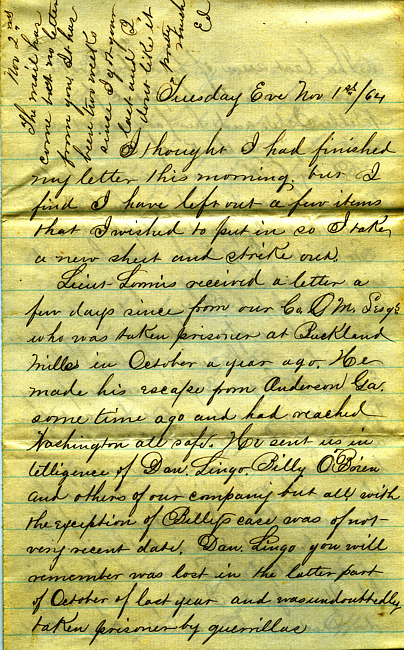 Nov 2nd
The mail has
come but no letter
from you. It has
been two weeks
since I got your
last and I
dont like it
pretty
much
Ed
Tuesday Eve Nov 1st/64
I thought I had finished
my letter this morning, but I
find I have left out a few items
that I wished to put in so I take
a new sheet and strike out.
Lieut Loomis received a letter a
few days since from our Co. Q. M. Sergt
who was taken prisoner at Buckland
Mills in October a year ago. He
made his escape from Anderson Ga.
some time ago and had reached
Washington all safe. He sent us in
telligence of Dan. Lingo, Billy O'Brien
and others of our company but all with
the exception of Billy's case was of not
very recent date. Dan. Lingo you will
remember was lost in the latter part
of October of last year and was undoubtedly
taken prisoner by guerrillas